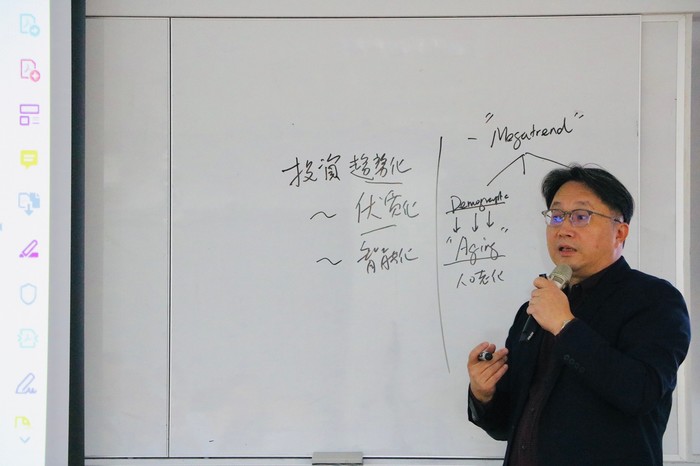 投資 趨勢化
~ 优質化
~ 智能化
- "Megatrend"
Demographic
"Aging"
人口老化